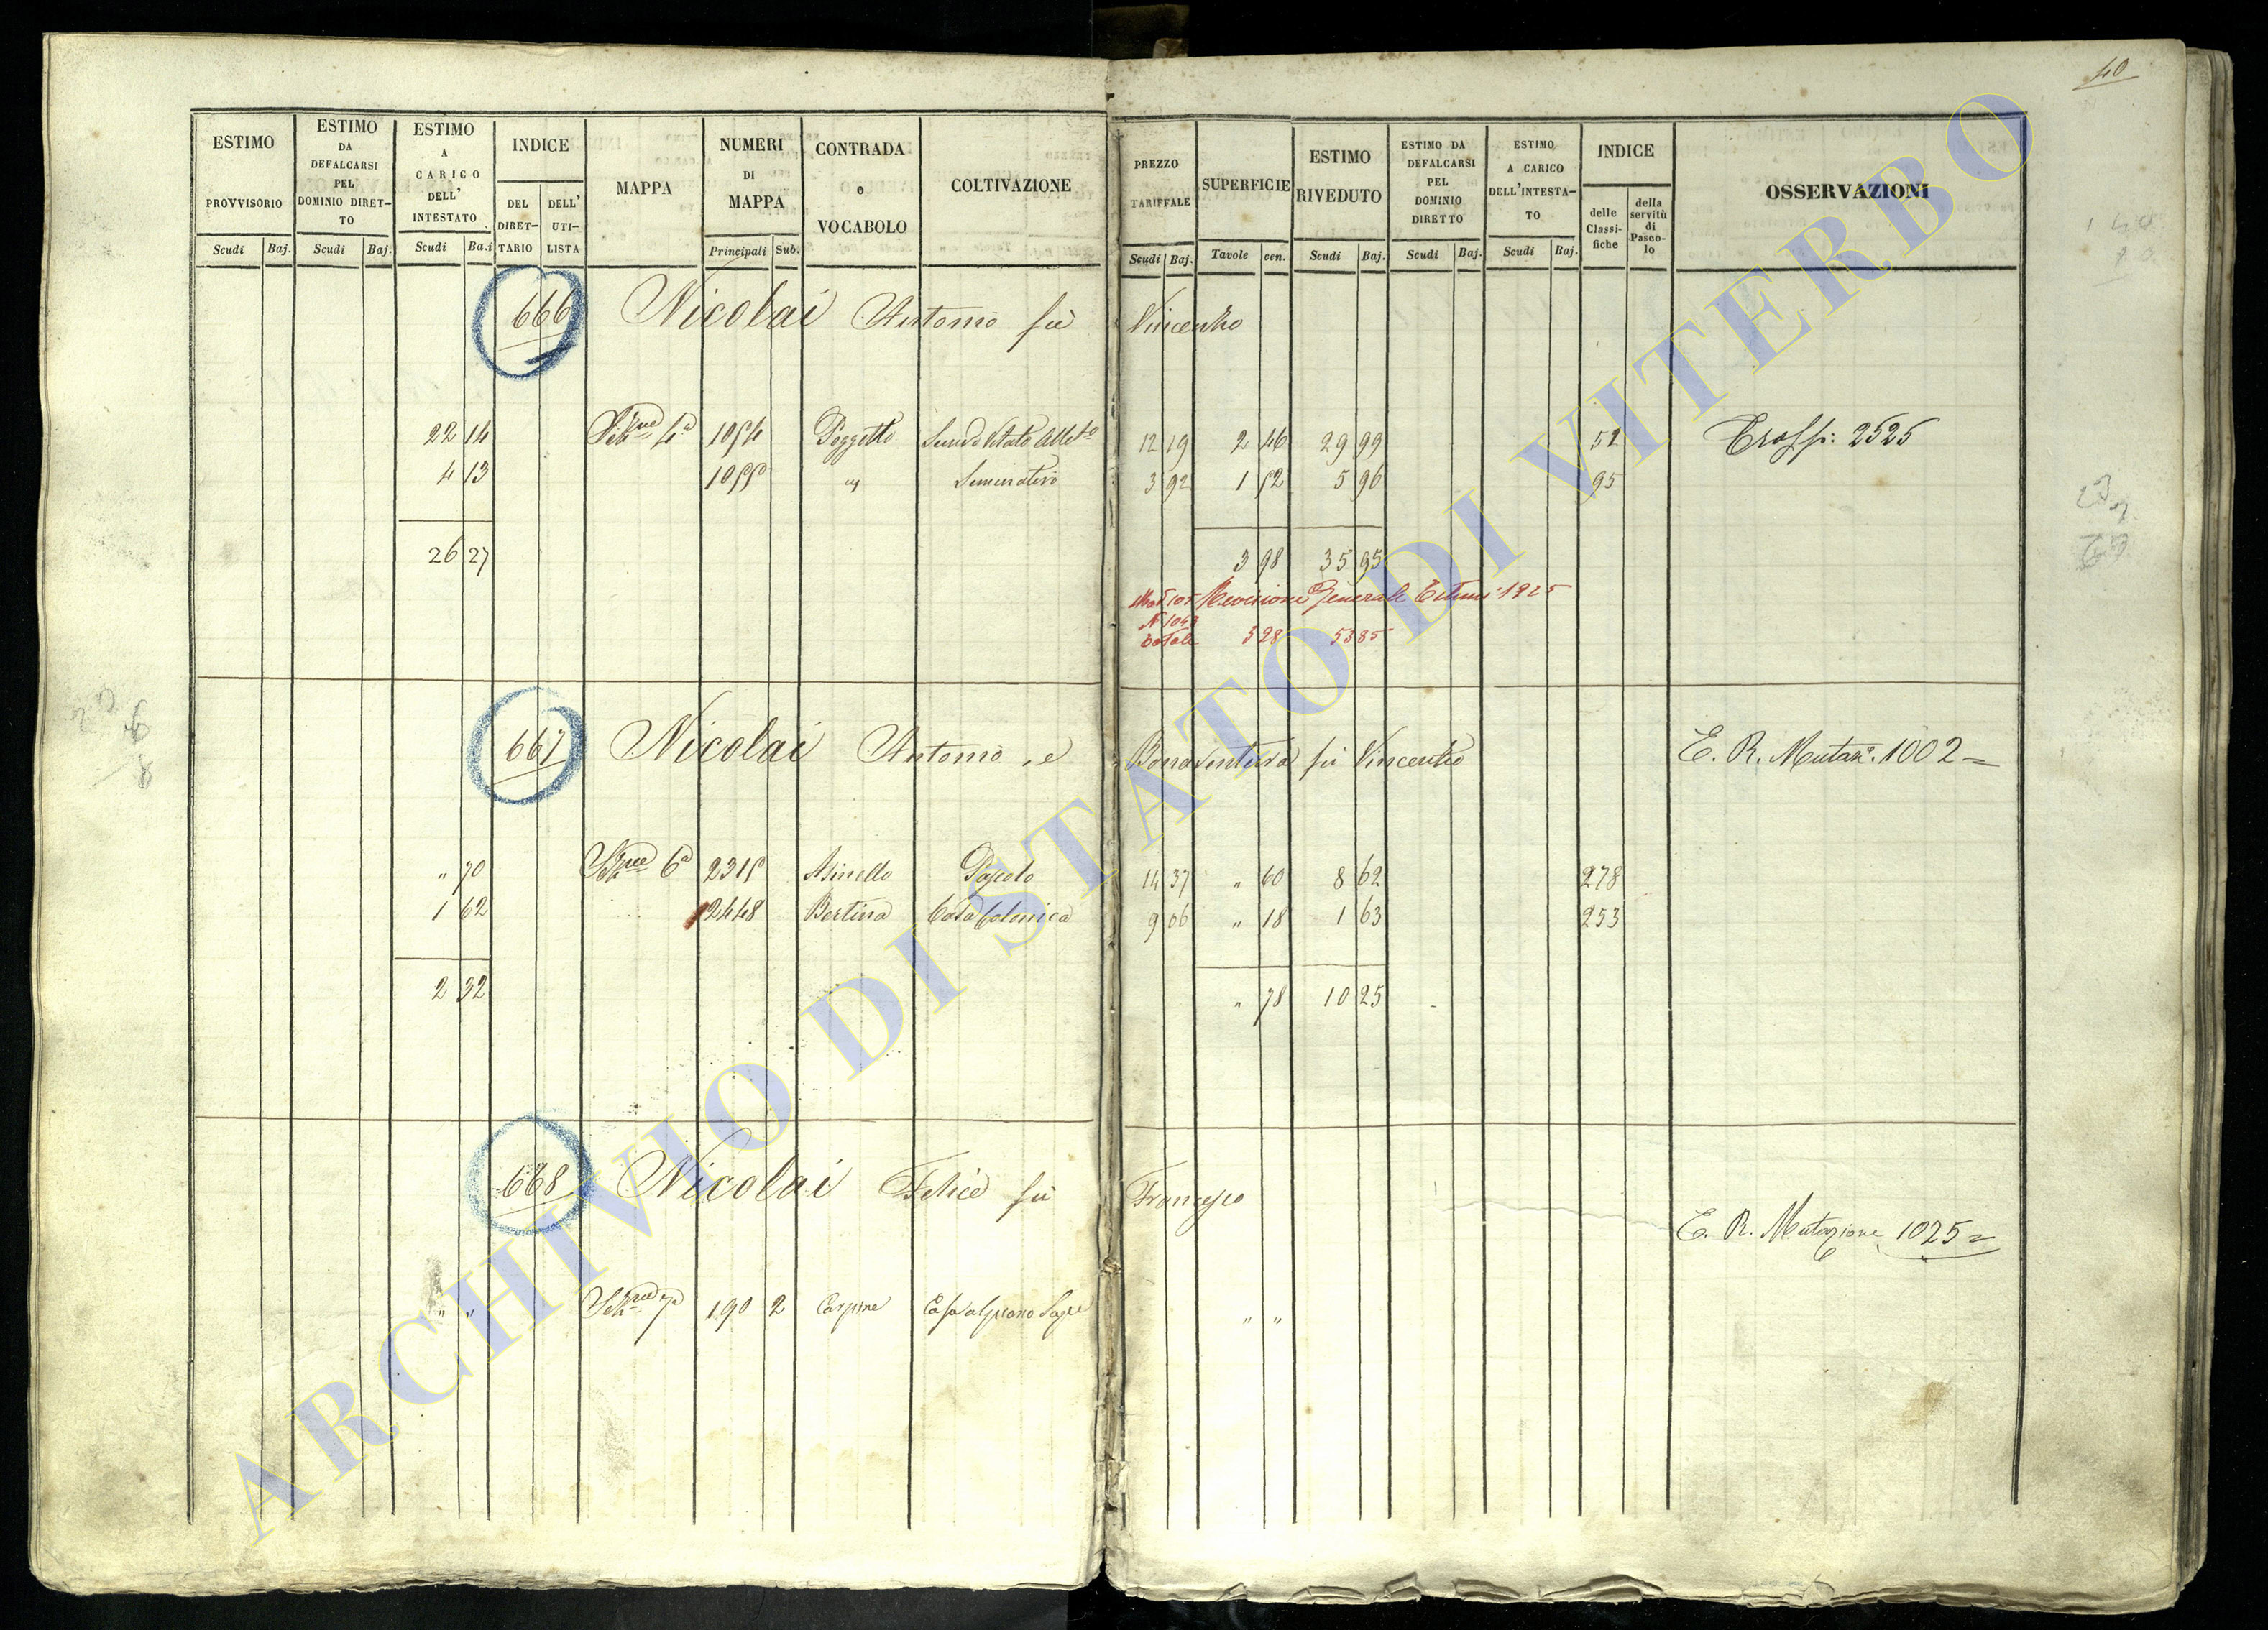 40
ESTIMO PROVVISORIO
ESTIMO DA DEFALCARSI PEL DOMINIO DIRET-TO
ESTIMO A CARICO DELL' INTESTATO
INDICE
DEL DIRET-TARIO
DELL' UTI-LISTA
MAPPA
NUMERI DI MAPPA
CONTRADA o VOCABOLO
COLTIVAZIONE
PREZZO TARIFFALE
SUPERFICIE
ESTIMO RIVEDUTO
ESTIMO DA DEFALCARSI PEL DOMINIO DIRETTO
ESTIMO A CARICO DELL'INTESTA-TO
INDICE
delle Classi-fiche
della servitù di Pasco-lo
OSSERVAZIONI
Scudi Baj. Scudi Baj. Scudi Ba.i Principali Sub. Scudi Baj. Tavole cen. Scudi Baj. Scudi Baj. Scudi Baj.
666 Nicolai Antonio fu Vincenzo
22 14 Sezne 4a 1054 Poggetto 12 19 2 46 29 99 52 2525
4 13 1055 " Seminativo 3 92 1 52 5 96 95
26 27 3 98 35 95
Revisione Generale Estimi 1925
N 1043
Totale 3 28 53 85
667 Nicolai Antonio, e Bonaventura fu Vincenzo E. R. Mutaz. 1002 =
" 70 Sezne 6a 2315 Asinello Pascolo 14 37 " 60 8 62 278
1 62 2448 Bertina Casa Colonica 9 06 " 18 1 63 253
2 32 " 78 10 25
668 Nicolai Felice fu Francesco
E. R. Mutazione 1025 =
" " Sezne 7a 190 2 Carpine Casa al piano " "
ARCHIVIO DI STATO DI VITERBO